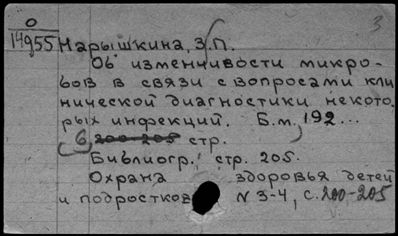 О
14955
3
Нарышкина, З.П.
Об изменчивости микро-
бов в связи с вопросами кли
нической диагностики некото
рых инфекций. Б.м., 192...
6 200-205 стр.
Библиогр. стр. 205.
Охрана здоровья детей
и подростков N 3-4, с. 200-205